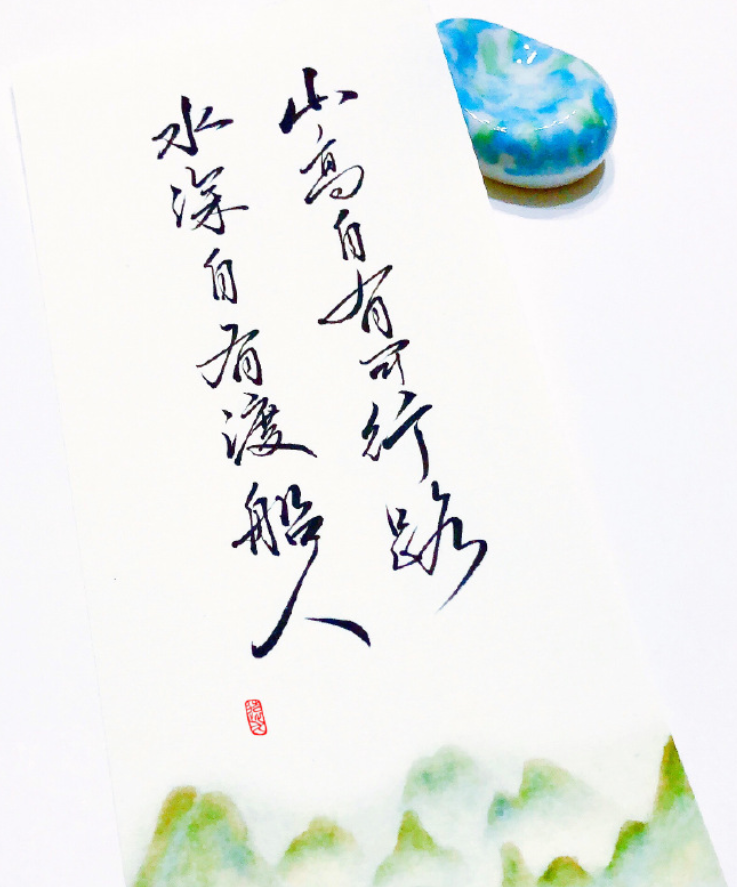 山高自有可行路
水深自有渡船人